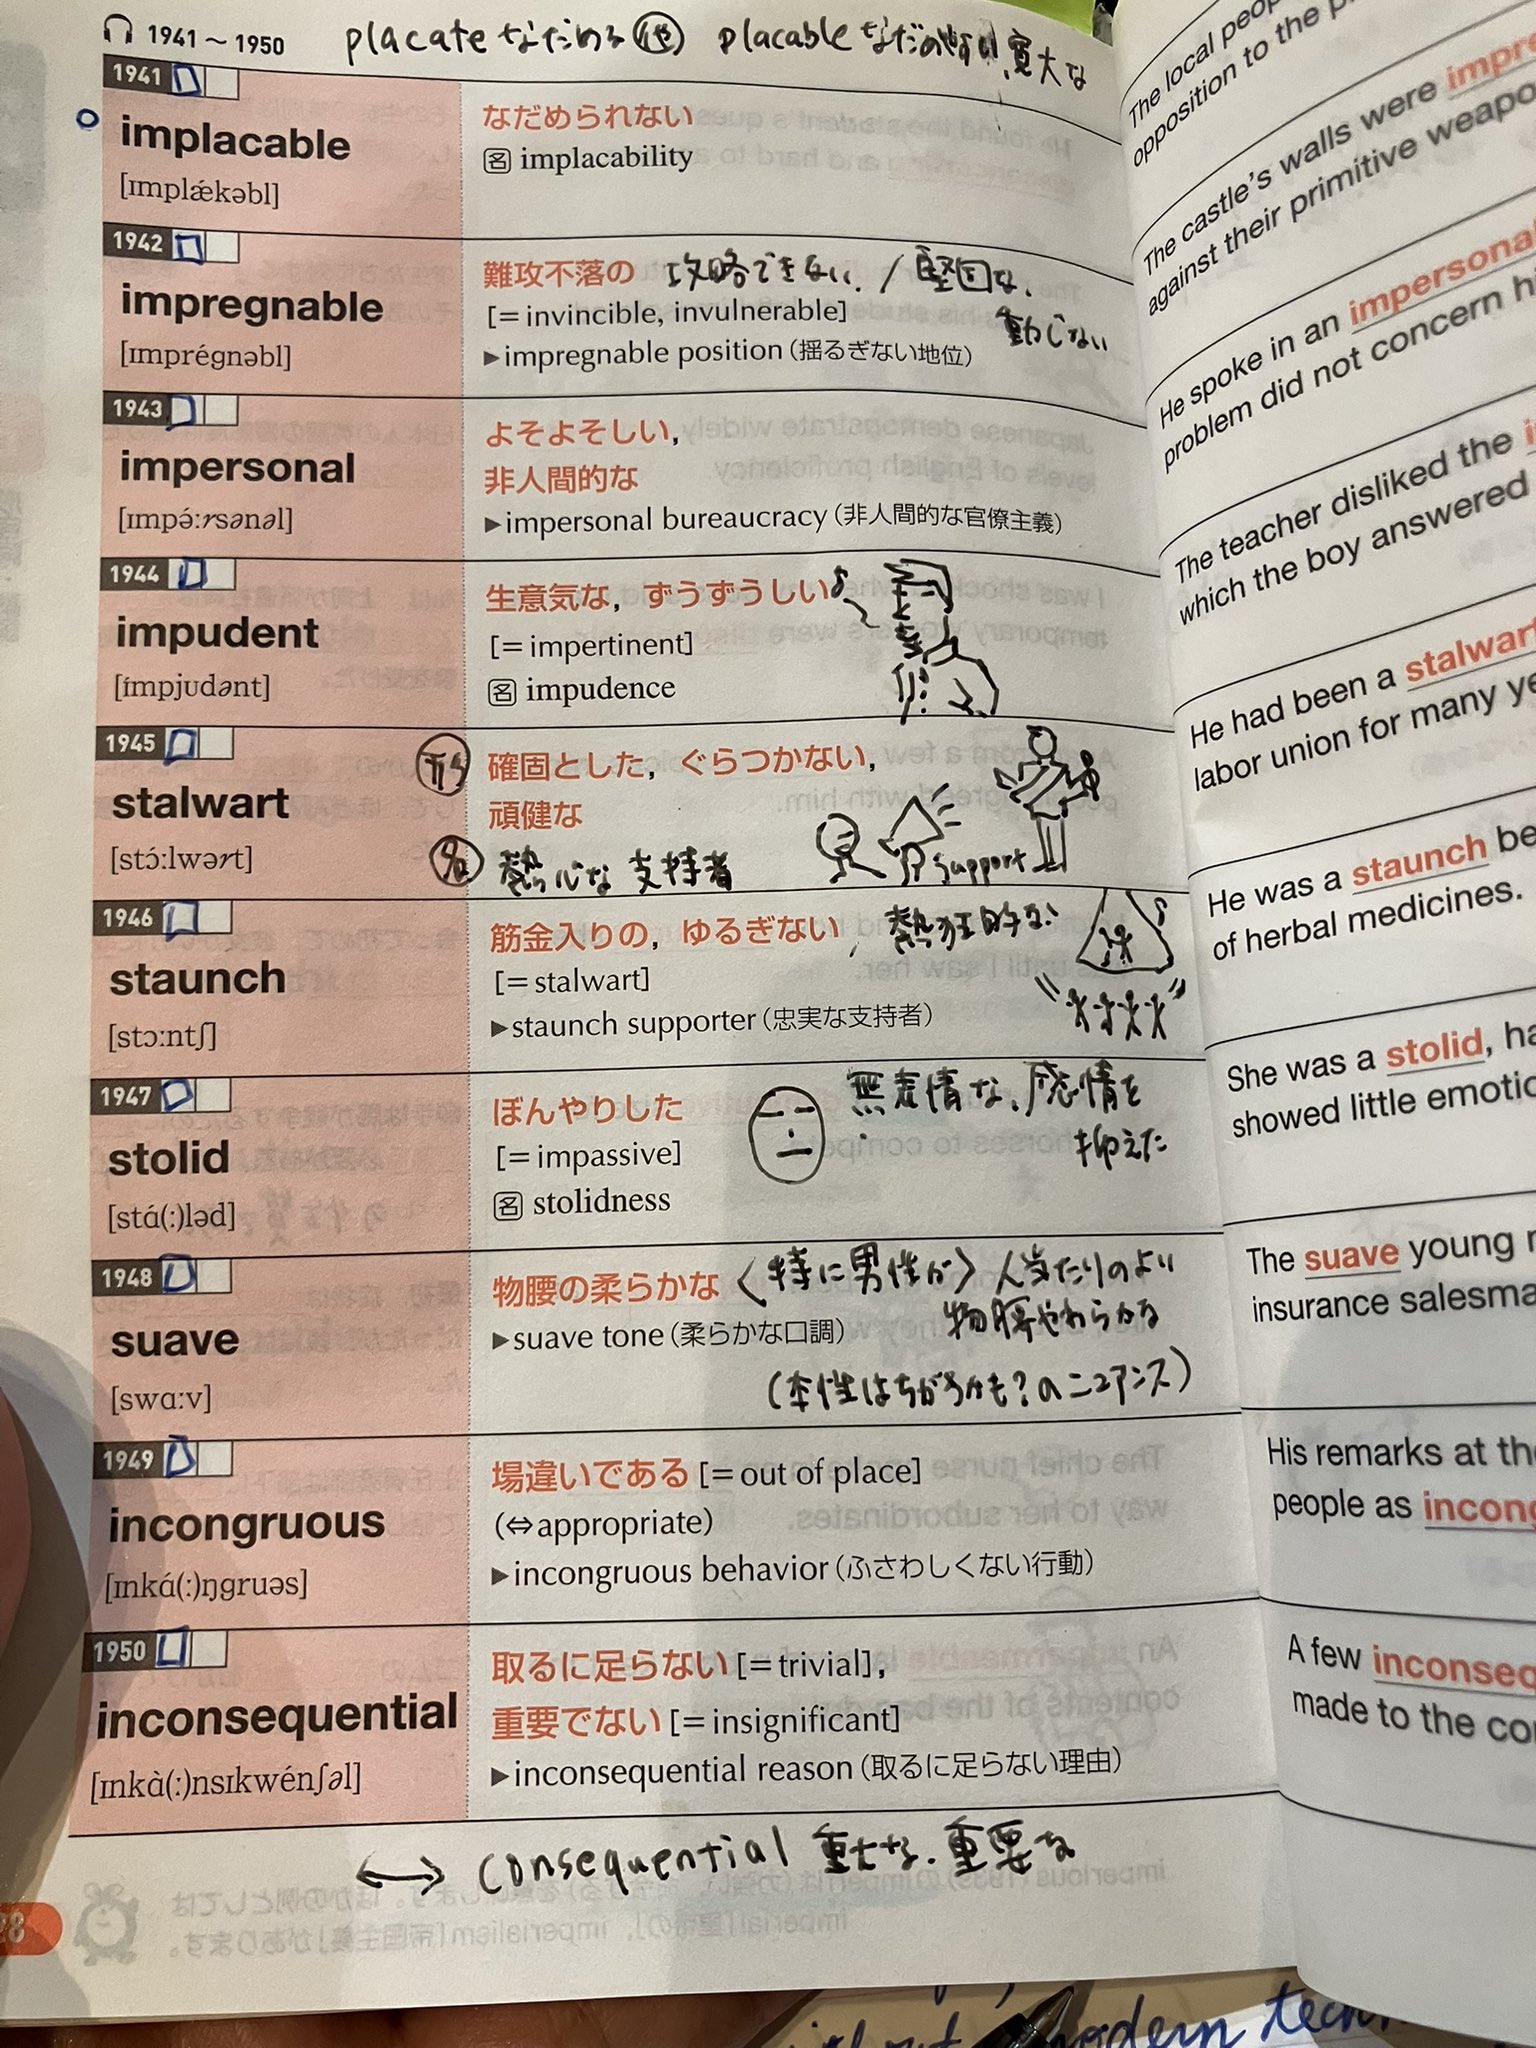 1941～1950 placate なだめる 他 placable なだめやすい、寛大な
1941
implacable
[ɪmplǽkəbl]
なだめられない
名 implacability
1942
impregnable
[ɪmprégnəbl]
難攻不落の 攻略できない、/堅固な、
動じない
[＝invincible, invulnerable]
▶impregnable position（揺るぎない地位）
1943
impersonal
[ɪmpə́ːrsənəl]
よそよそしい，
非人間的な
▶impersonal bureaucracy（非人間的な官僚主義）
1944
impudent
[ímpjʊdənt]
生意気な，ずうずうしい
[＝impertinent]
名 impudence
1945
stalwart
[stɔ́ːlwərt]
形 確固とした，ぐらつかない，
頑健な
名 熱心な支持者
support
1946
staunch
[stɔːntʃ]
筋金入りの，ゆるぎない、熱狂的な
[＝stalwart]
▶staunch supporter（忠実な支持者）
1947
stolid
[stɑ́(ː)ləd]
ぼんやりした
[＝impassive]
名 stolidness
無表情な、感情を
抑えた
1948
suave
[swɑːv]
物腰の柔らかな〈特に男性が〉人当たりのよい
物腰やわらかな
▶suave tone（柔らかな口調）
（本性はちがうかも？のニュアンス）
1949
incongruous
[ɪnkɑ́(ː)ŋgruəs]
場違いである [＝out of place]
(⇔appropriate)
▶incongruous behavior（ふさわしくない行動）
1950
inconsequential
[ɪnkɑ̀(ː)nsɪkwénʃəl]
取るに足らない [＝trivial]，
重要でない [＝insignificant]
▶inconsequential reason（取るに足らない理由）
⟷ consequential 重大な、重要な
28
The local
opposition to the
The castle's walls were
against their primitive
He spoke in an impersonal
problem did not concern
The teacher disliked the
which the boy answered
He had been a stalwart
labor union for many
He was a staunch
of herbal medicines.
She was a stolid,
showed little
The suave young
insurance
His remarks at
people as
A few
made to the
modern